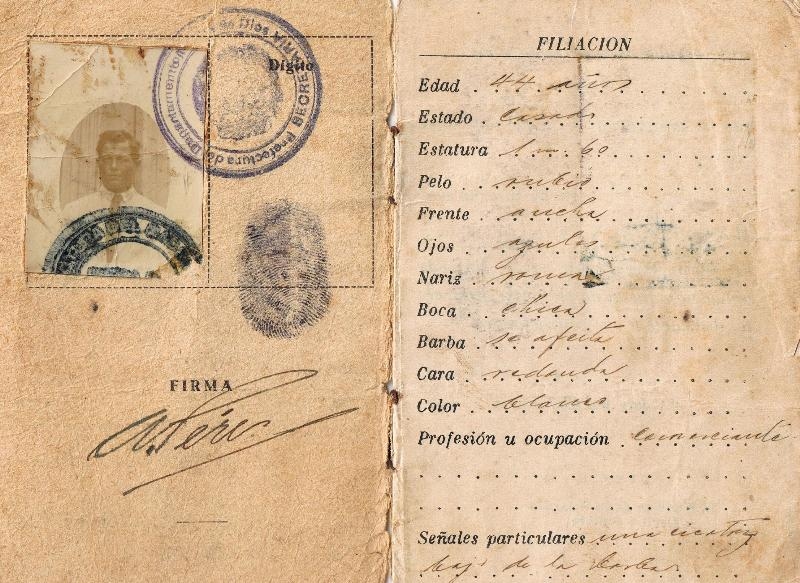 de Dios
Prefectura de
Departamento
SECRE
Dígito
FIRMA
A. Péric
FILIACION
Edad 44 años
Estado casado
Estatura 1 m. 60
Pelo rubio
Frente ancha
Ojos azules
Nariz romana
Boca chica
Barba se afeita
Cara redonda
Color blanco
Profesión u ocupación comerciante
Señales particulares una cicatriz
bajo de la barba